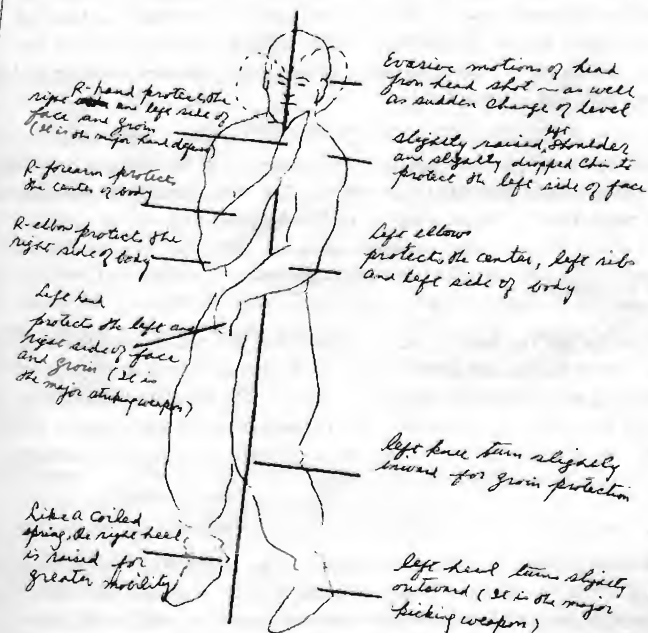 R-hand protect the
right and left side of
face and groin
(It is the major hand defense)
R-forearm protects
the center of body
R-elbow protect the
right side of body
Left hand
protects the left and
right side of face
and groin (It is
the major striking weapon)
Like a coiled
spring, the right heel
is raised for
greater mobility
Evasive motions of head
from head shot — as well
as sudden change of level
slightly raised left shoulder
and slightly dropped chin to
protect the left side of face
Left elbows
protects the center, left ribs
and left side of body
left knee turn slightly
inward for groin protection
left heel turns slightly
outward (It is the major
kicking weapon)